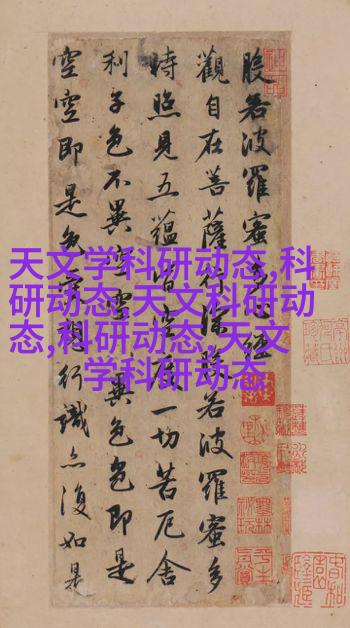 般若波羅蜜多心經
觀自在菩薩行深般若波羅蜜多
時照見五蘊皆空度一切苦厄舍
利子色不異空空不異色色即是
空空即是色受想行識亦復如是
天文学科研动态,科
研动态,天文科研动
态,科研动态,天文
学科研动态